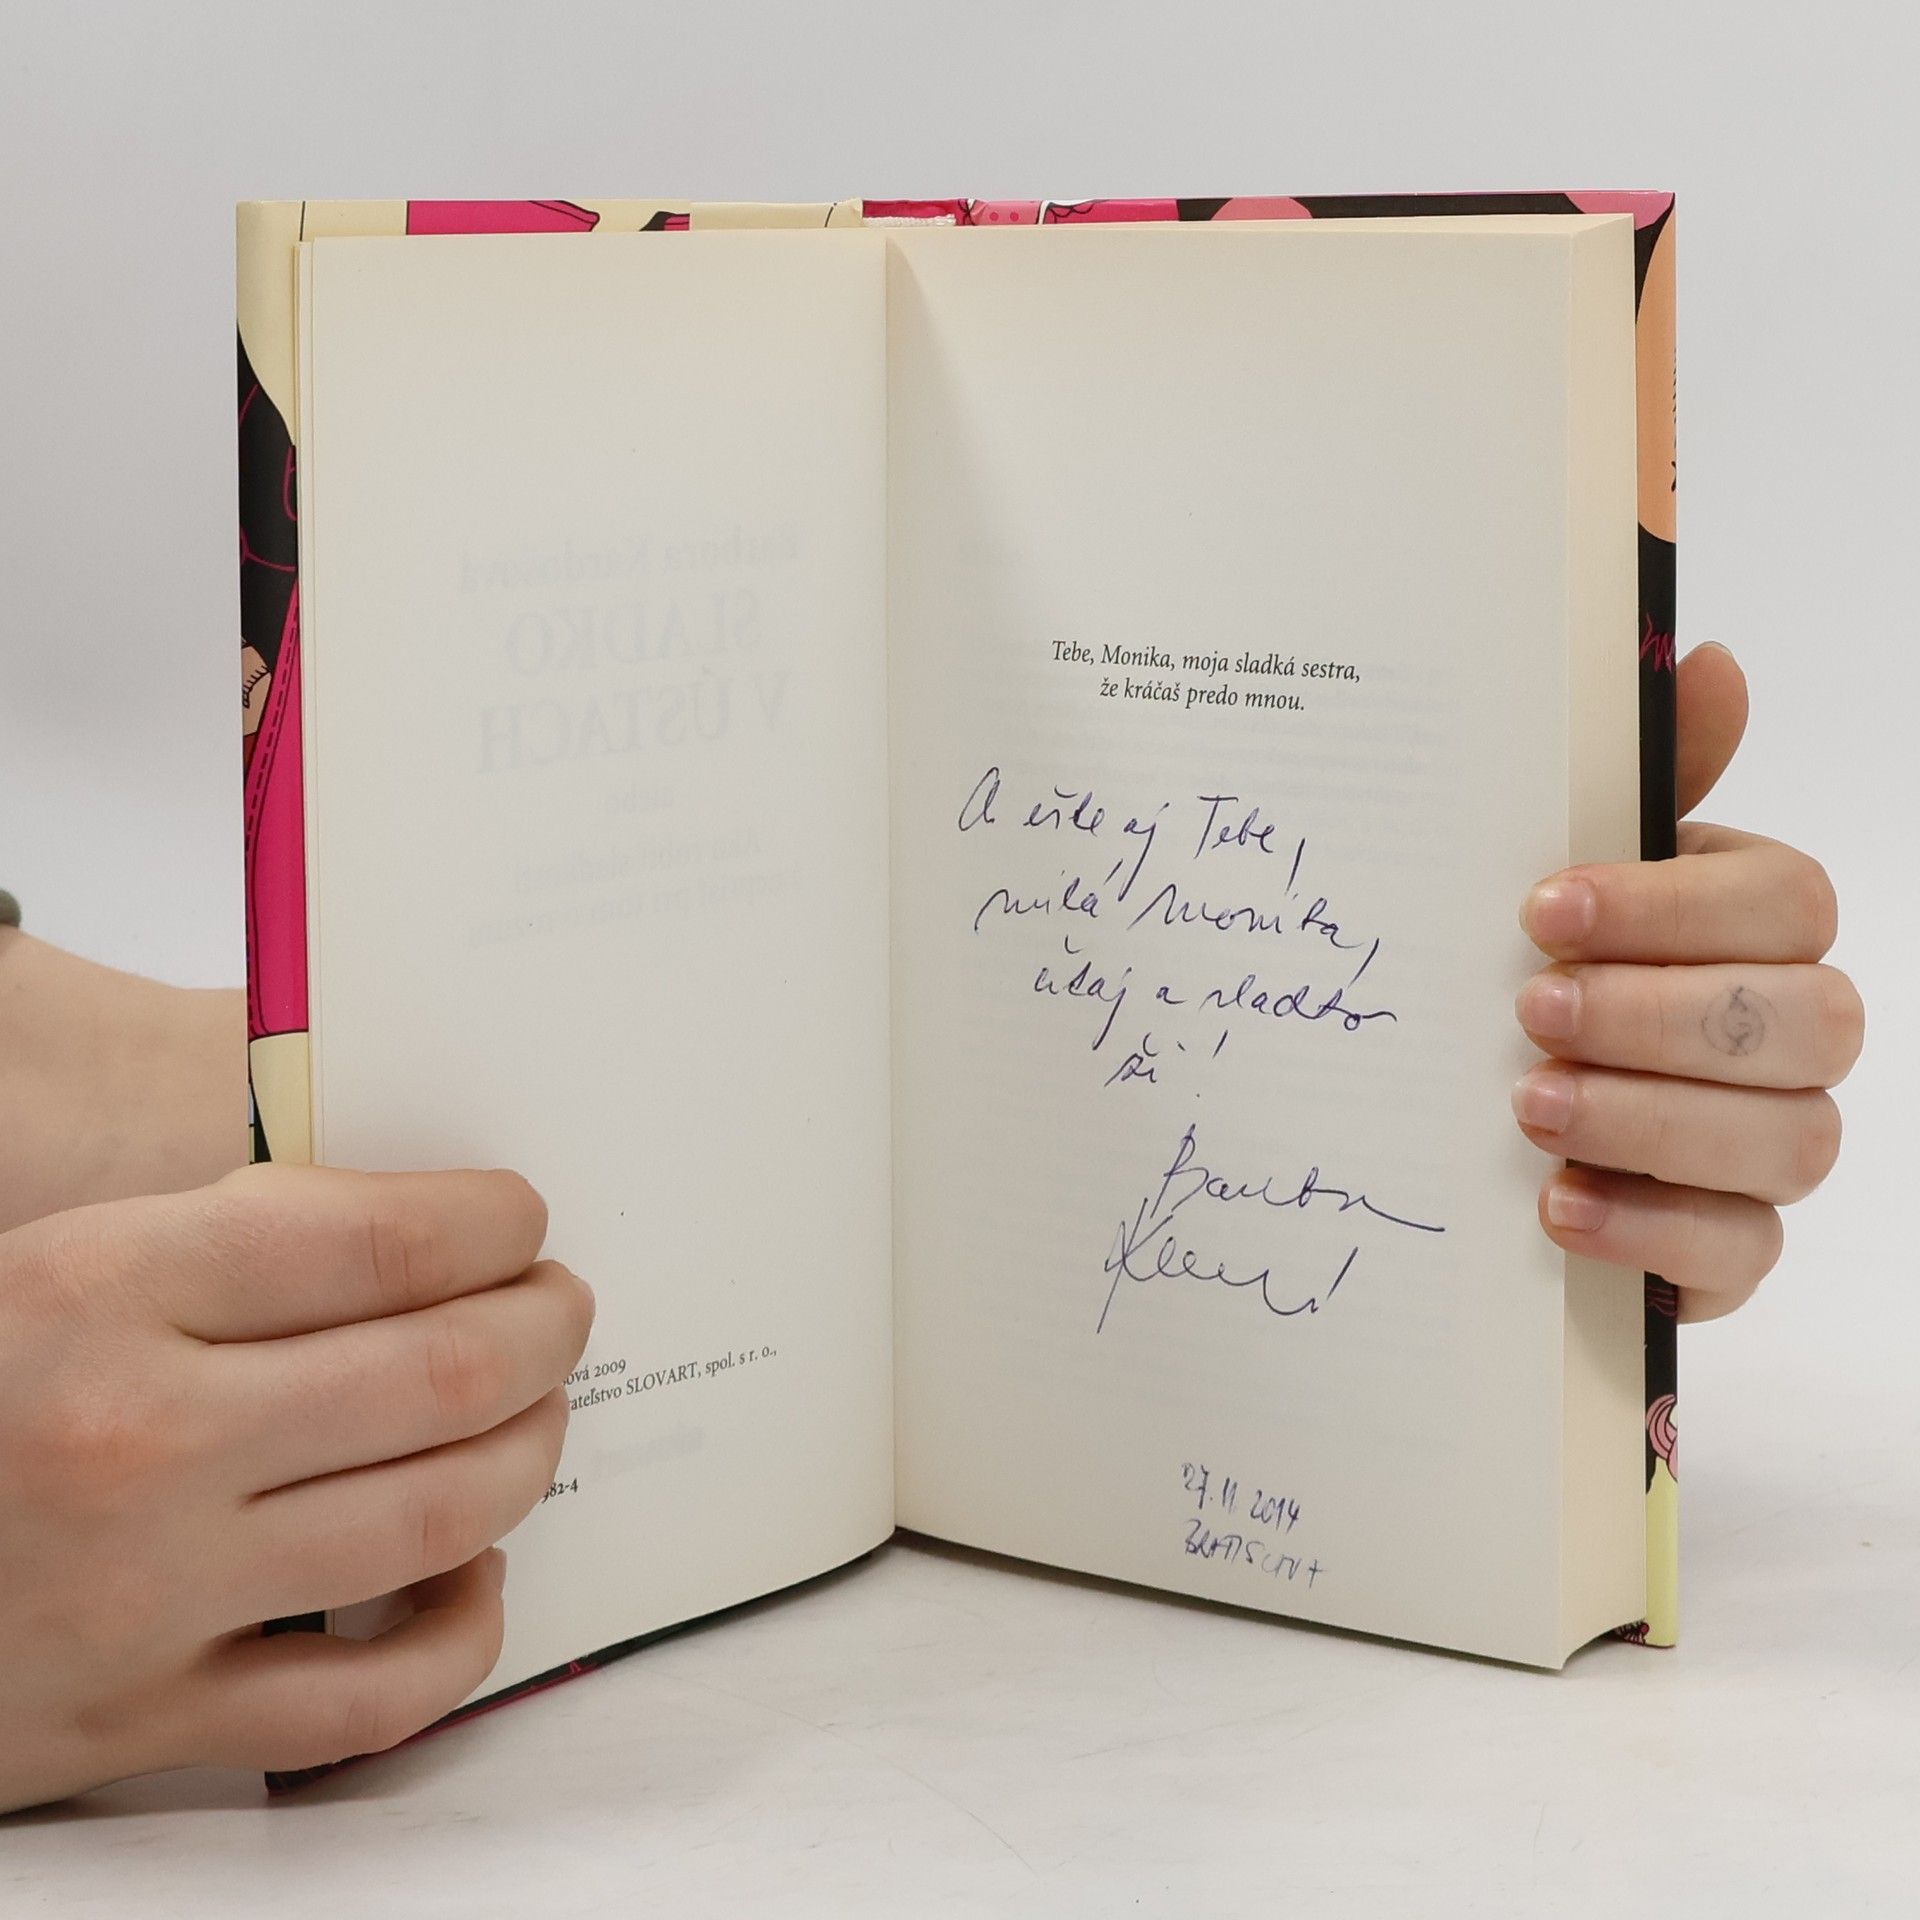 sová 2009
vateľstvo SLOVART, spol. s r. o.,
982-4
Tebe, Monika, moja sladká sestra,
že kráčaš predo mnou.
A ešte aj Tebe,
milá Monika,
čítaj a sladko
ži!
Barbora
27.11.2014
BRATISLAVA